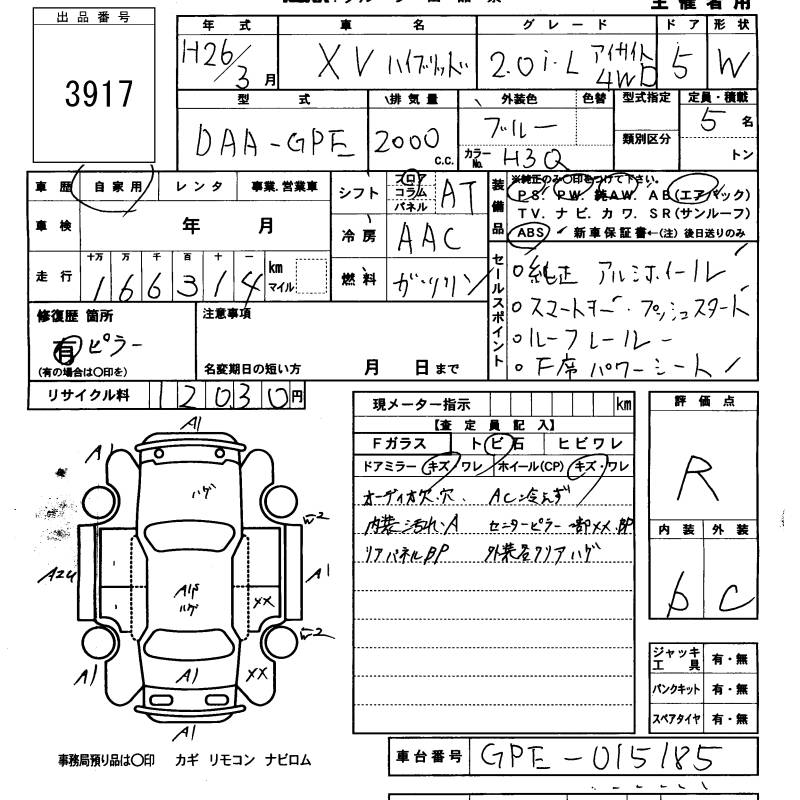 主催者用
出品番号
3917
年式 車名 グレード ドア 形状
H26/3月 XV ハイブリッド 2.0i-L アイサイト 4WD 5 W
型式 排気量 外装色 色替 型式指定 定員・積載
DAA-GPE 2000 c.c. ブルー 類別区分 5名
カラーNo. H3Q トン
車歴 自家用 レンタ 事業.営業車
シフト フロア コラム パネル AT
装備品 ※純正のみ○印をつけて下さい。
PS. PW. 純AW. AB(エアバック)
TV. ナビ. カワ. SR(サンルーフ)
ABS 新車保証書←(注) 後日送りのみ
車検 年 月
冷房 AAC
走行 十万 万 千 百 十 一 km マイル
166314
燃料 ガソリン
セールスポイント
○純正アルミホイール
○スマートキー・プッシュスタート
○ルーフレール
○F席パワーシート
修復歴 箇所
有 ピラー
(有の場合は○印を)
注意事項
名変期日の短い方 月 日まで
リサイクル料 12030円
現メーター指示 km
【査定員記入】
Fガラス トビ石 ヒビワレ
ドアミラー キズ・ワレ ホイール(CP) キズ・ワレ
オーディオ欠.穴 AC冷えず
内装汚れ・A センターピラー一部XX.BP
リアパネルBP 外装各クリアハゲ
評価点
R
内装 外装
b C
ジャッキ工具 有・無
パンクキット 有・無
スペアタイヤ 有・無
A1
A1
ハゲ
W2
A2U
A1
ハゲ
XX
A1
W2
A1
A1
XX
A1
事務局預り品は○印 カギ リモコン ナビロム
車台番号 GPE-015185